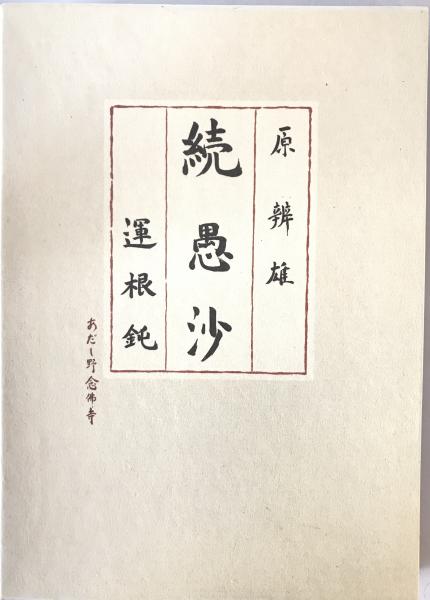 原辨雄
続愚沙
運根鈍
あだし野念佛寺